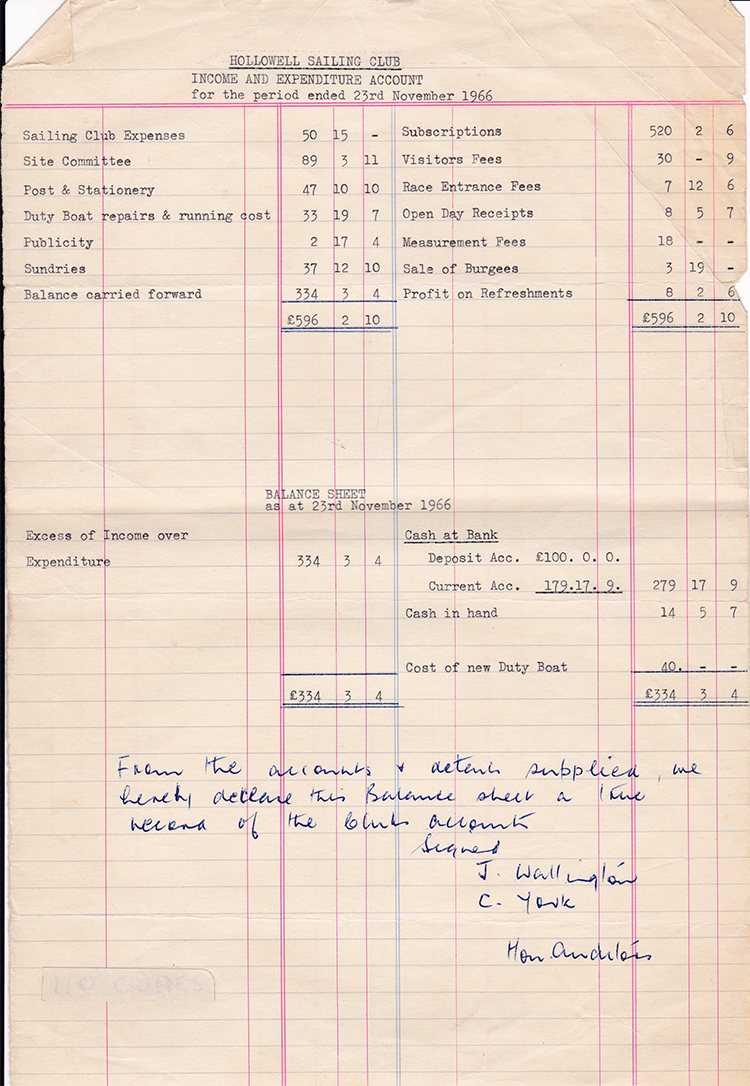 HOLLOWELL SAILING CLUB
INCOME AND EXPENDITURE ACCOUNT
for the period ended 23rd November 1966
Sailing Club Expenses 50 15 - Subscriptions 520 2 6
Site Committee 89 3 11 Visitors Fees 30 - 9
Post & Stationery 47 10 10 Race Entrance Fees 7 12 6
Duty Boat repairs & running cost 33 19 7 Open Day Receipts 8 5 7
Publicity 2 17 4 Measurement Fees 18 - -
Sundries 37 12 10 Sale of Burgees 3 19 -
Balance carried forward 334 3 4 Profit on Refreshments 8 2 6
£596 2 10 £596 2 10
BALANCE SHEET
as at 23rd November 1966
Excess of Income over Cash at Bank
Expenditure 334 3 4 Deposit Acc. £100. 0. 0.
Current Acc. 179.17. 9. 279 17 9
Cash in hand 14 5 7
Cost of new Duty Boat 40. - -
£334 3 4 £334 3 4
From the accounts & details supplied, we
hereby declare this Balance sheet a true
record of the Clubs accounts
Signed
J. Wallington
C. York
Hon. Auditors